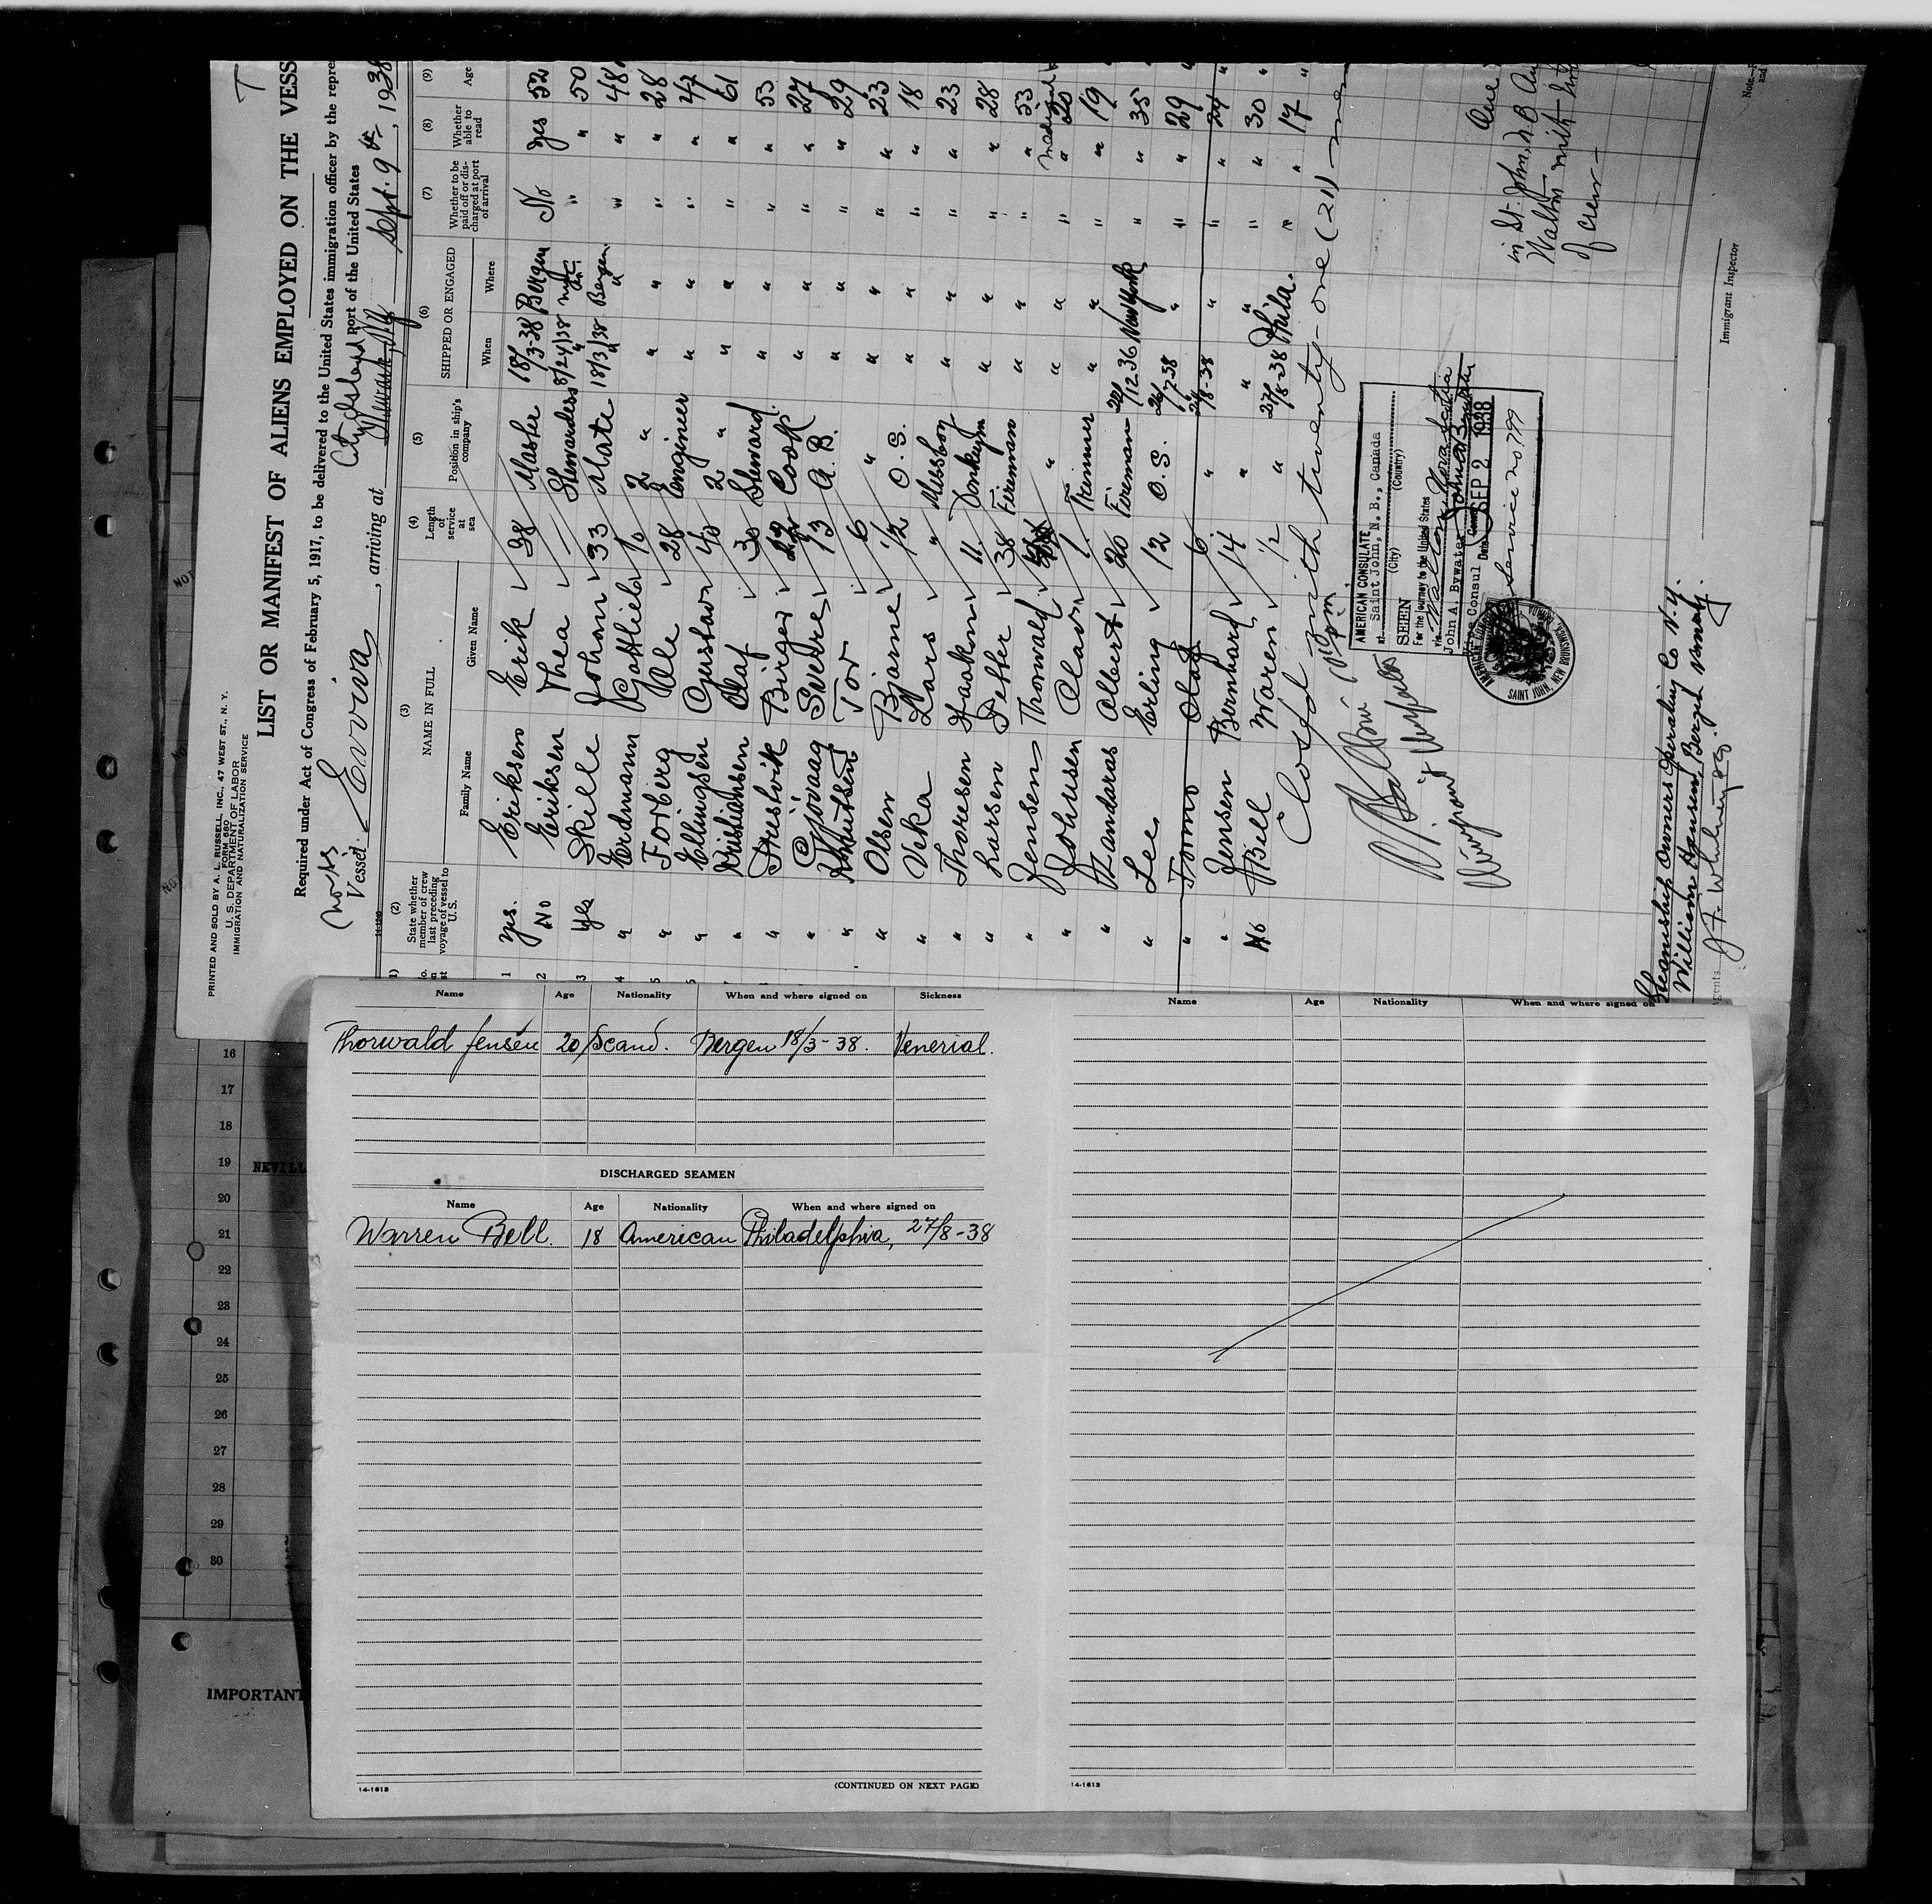 PRINTED AND SOLD BY A. L. RUSSELL, INC., 47 WEST ST., N. Y.
U. S. DEPARTMENT OF LABOR
FORM 680
IMMIGRATION AND NATURALIZATION SERVICE
LIST OR MANIFEST OF ALIENS EMPLOYED ON THE VESS
Required under Act of Congress of February 5, 1917, to be delivered to the United States immigration officer by the repre
port of the United States
Vessel Enviva, arriving at Sept. 9, 1938
(2) (3) (4) (5) (6) (7) (8) (9)
State whether member of crew last preceding voyage of vessel to U.S. NAME IN FULL Length of service at sea Position in ship's company SHIPPED OR ENGAGED Whether to be paid off or discharged at port of arrival Whether able to read Age
Family Name Given Name When Where
1 Yes. Eriksen Erik 38 Master 18/3-38 Bergen No Yes 52
2 No Eriksen Thea — Stewardess 8/24/38 nyc " " 50
3 Yes Skille Johan 33 Mate 18/3/38 Bergen " " 48
4 " Erdmann Gottlieb 10 2 " " " " " 28
5 " Forberg Ole 28 Engineer " " " " 47
" Ellingsen Gustav 40 2 " " " " " 61
" Kristiansen Olaf 30 Steward " " " " 53
" Birger Cook " " " " 27
" Gjövaag Sverre 13 A. B. " " " " 29
" Knutsen Tor 6 " " " " " 23
" Olsen Bjarne 1/2 O. S. " " " " 18
" Veka Lars " Messboy " " " " 23
" Thoresen Haakon 11 Donkeym " " " " 28
" Larsen Detler 38 Fireman " " " " 53
" Jensen Thorwald " " " " " 20
" Johnsen Olav 1 Trimmer " " " " 19
" Albert 20 Fireman 12-36 New York " " 35
" Lee Erling 12 O. S. 26/7-38 " " " 29
" Tomo Olaf 6 " /8-38 " " " 24
" Jensen Bernhard 14 " " " " " 30
No Bell Waren 1/2 " 27/8-38 Phila. " " 17
Closed with twenty-one (21)
AMERICAN CONSULATE
at Saint John, N. B., Canada
(City) (Country)
SEEN
For the journey to the United States
via Walton Nova Scotia
John A. Bywater
Vice Consul
Date SEP 2 1938
Service No 799
SAINT JOHN, NEW BRUNSWICK
in St. John, N.B
Walton with
of crew —
Steamship Owners Operating Co N.Y.
Immigrant Inspector
Name Age Nationality When and where signed on Sickness
Thorwald Jensen 20 Scand. Bergen 18/3-38. Venerial.
DISCHARGED SEAMEN
Name Age Nationality When and where signed on
Warren Bell. 18 American Philadelphia, 27/8-38
14-1613
(CONTINUED ON NEXT PAGE)
Name Age Nationality When and where signed on
14-1613
16
17
18
19 NEVILL
20
21
22
23
24
25
26
27
28
29
30
IMPORTANT